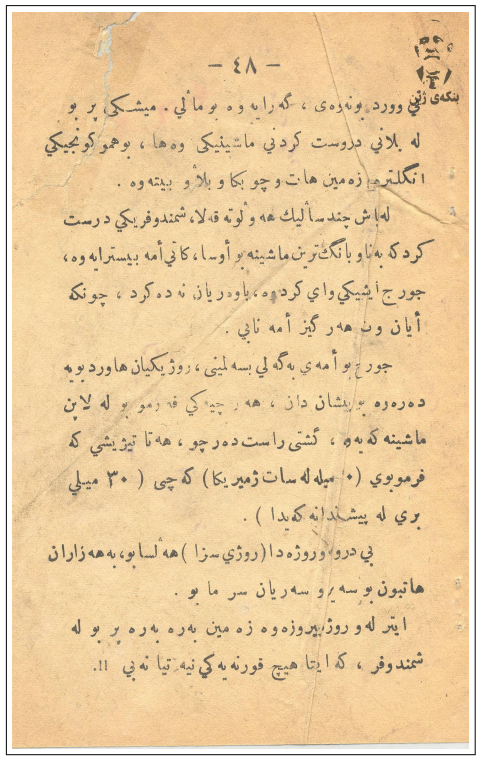 — ٤٨ —
بنكەی ژین
وورد بونەوەی ، گەرایە وە بو مالی . میشکی پر بو
لە بلانی دروست کردنی ماشینیکی وەها ، بو هموکونجیکی
انگلترە زەمین هات و چو بکا و بلاو ببیتەوە .
لەپاش چند سالیك هەولوتەقەلا، شمندوفریکی درست
کردکە بەناوبانگ ترین ماشینە بو أوسا، کاتی أمە بیسترایەوە،
جورج ایشیکی وای کردوە، باوەریان نەدەکرد ، چونکە
أیان وت هەرگیز أمە نابی .
جورج بو أمەی بەگەلی بسەلمینی، روژیکیان هاوردبویە
دەرەوە بو پیشان دان ، هەر چیەکی فەرمو بو لە لاین
ماشینەکەیەوە ، گشتی راست دەرچو ، هەتا تیژیشی کە
فرموبوی ( میلە لە سات ژمیریکا) کە چی ( ٣٠ میلی
بری لە پیشندانەکەیدا ) .
بی درو وروژەدا (روژی سزا ) هەلسابو، بە هەزاران
هاتبون بو سەیر و سەریان سر ما بو .
ایتر لەو روژ بیروزەوە زەمین بەرە بەرە پر بو لە
شمندوفر ، کە ایتا هیچ قورنەیەکی نیە تیا نەبی !!.